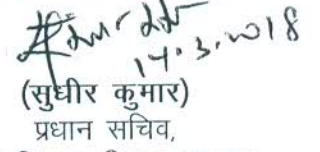 14.3.2018
(सुधीर कुमार)
प्रधान सचिव,